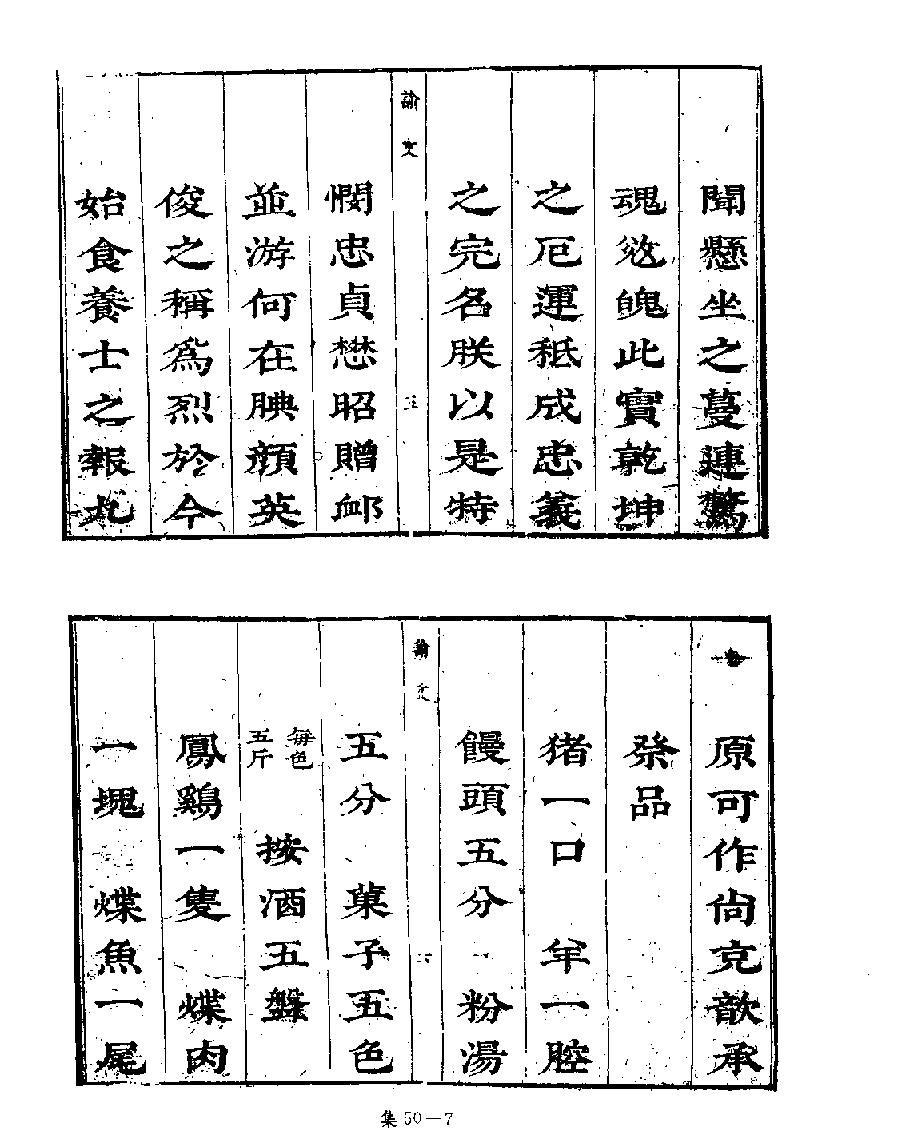 聞懸坐之蔓連驚
魂愁魄此實乾坤
之厄運秪成忠義
之完名朕以是特
諭文
五
憫忠貞懋昭贈卹
並游何在腆顏英
俊之稱為烈於今
始食養士之報九
原可作尙克歆承
祭品
猪一口 羊一腔
饅頭五分 粉湯
諭文
六
五分 菓子五色
每色五斤 按酒五盤
鳳鷄一隻 煠肉
一塊 煠魚一尾
集50—7